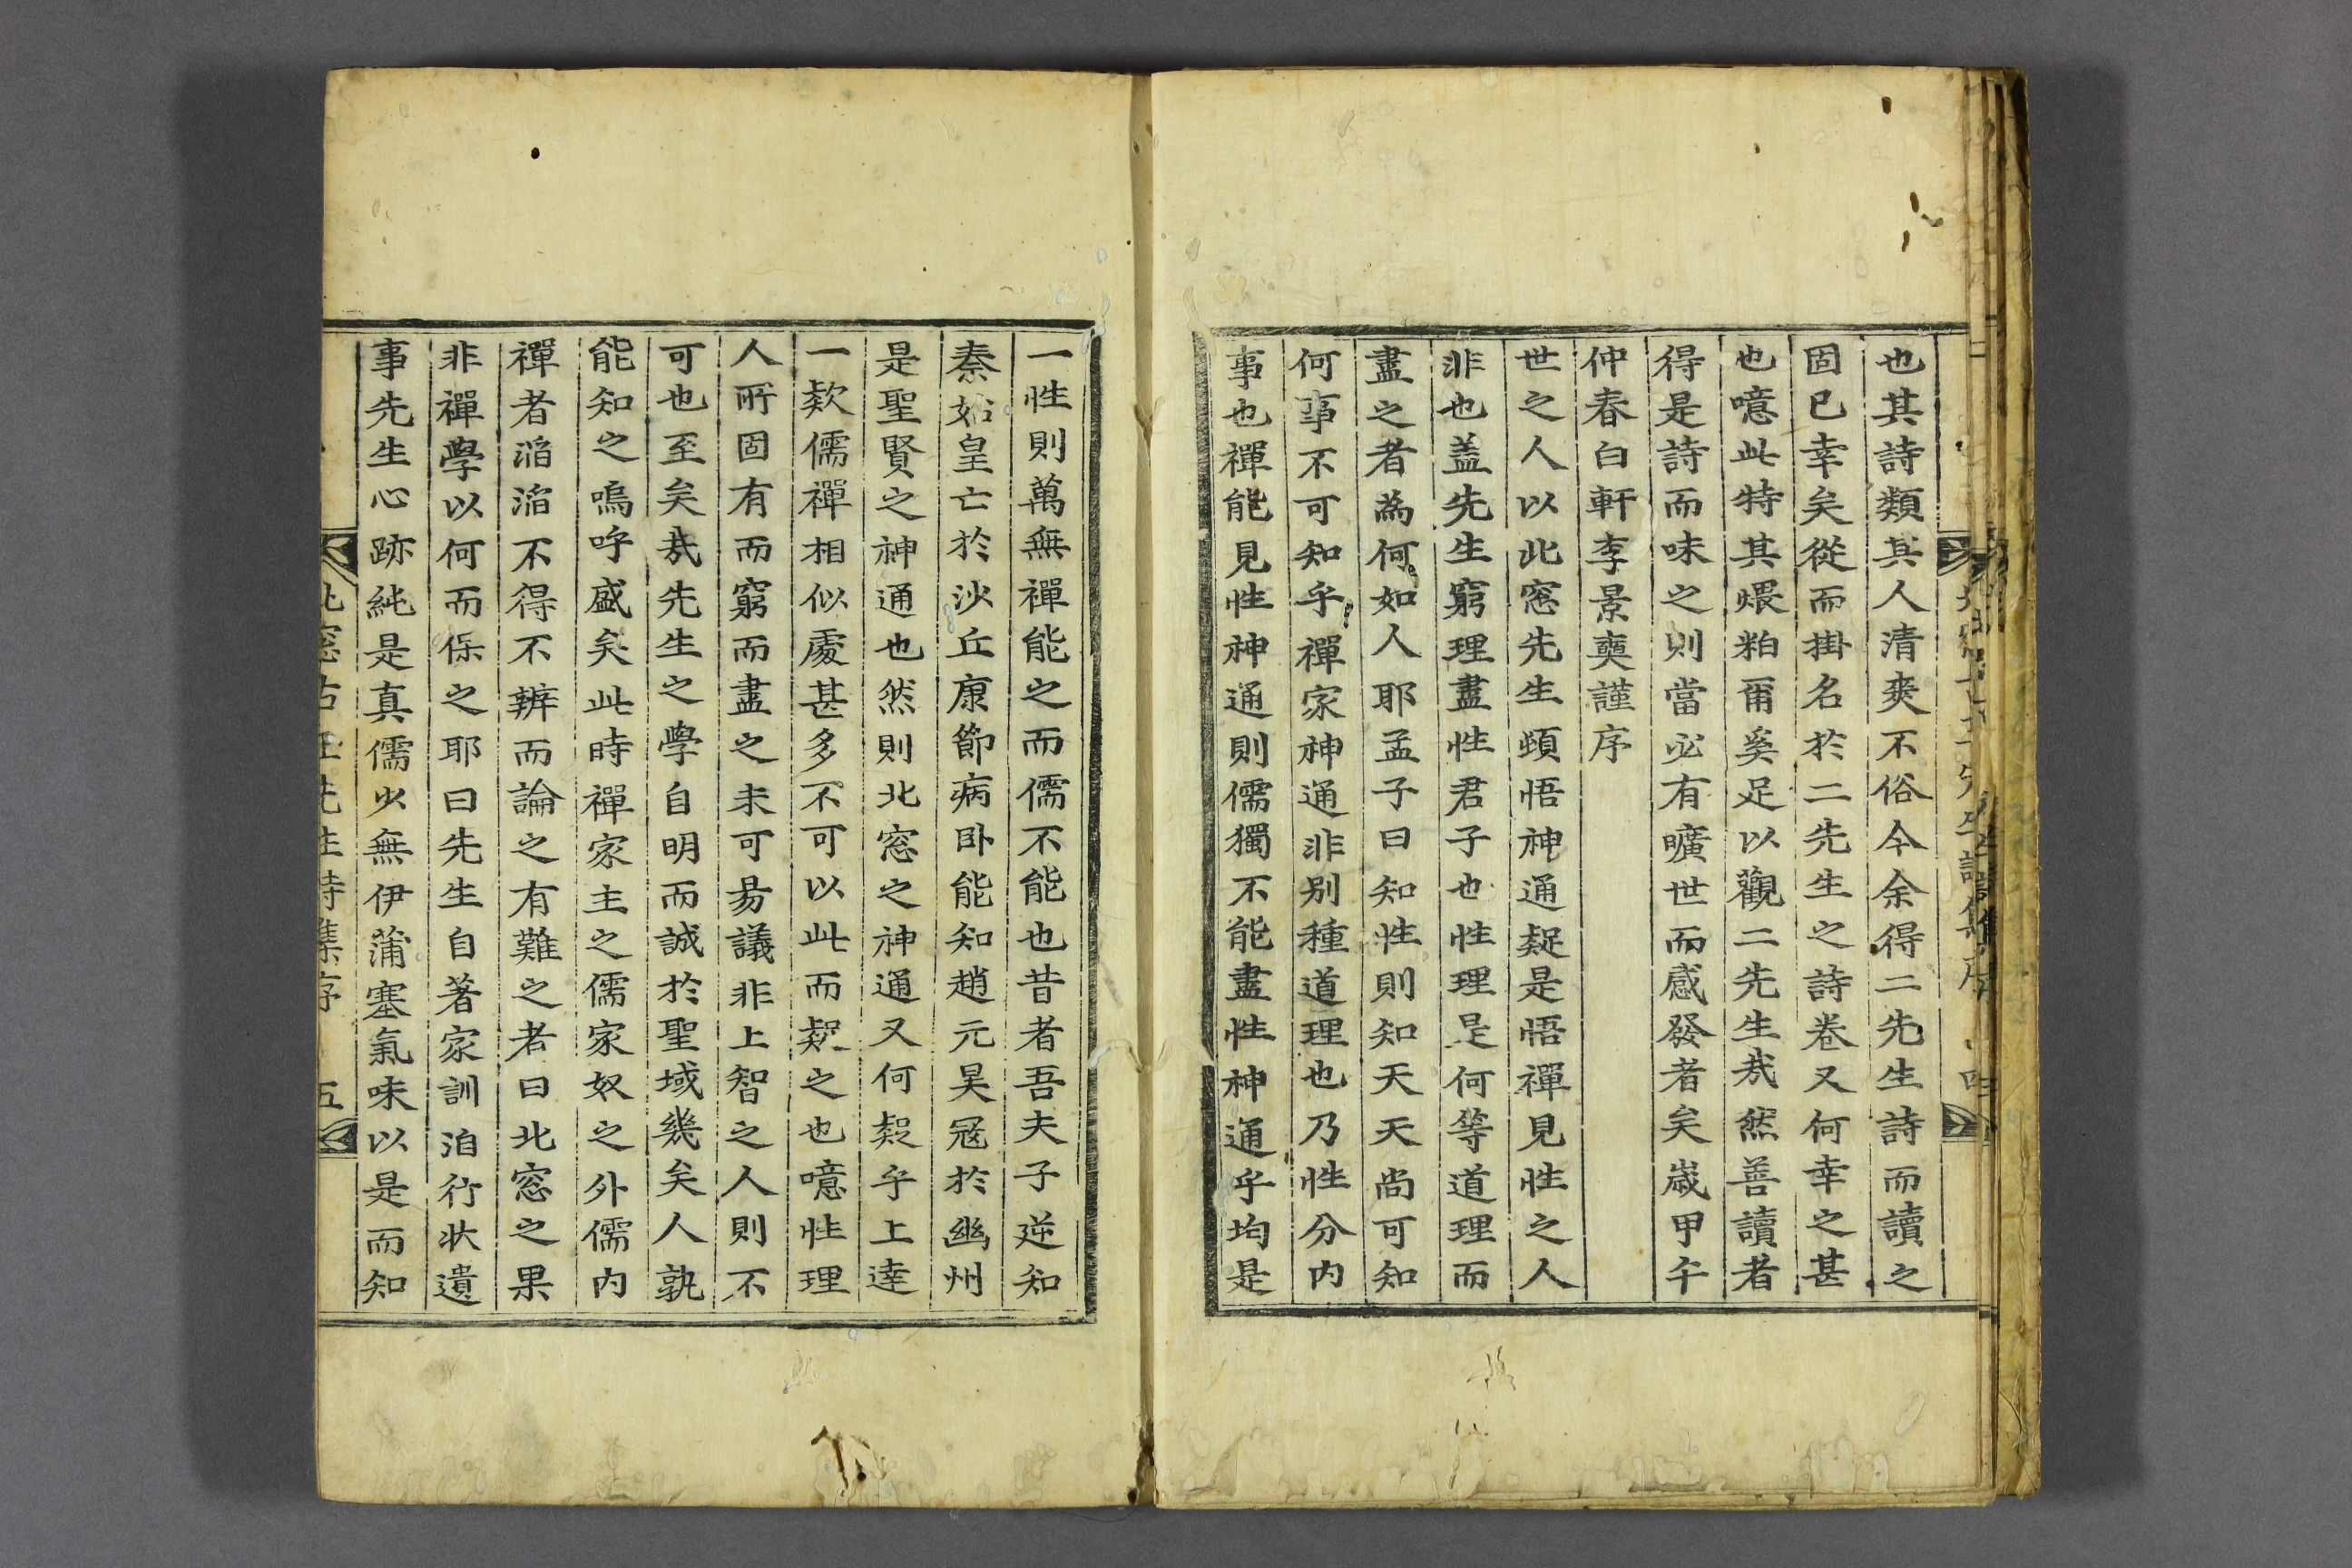 也其詩類其人清爽不俗今余得二先生詩而讀之
固已幸矣從而掛名於二先生之詩卷又何幸之甚
也噫此特其煨粕爾奚足以觀二先生㢤然善讀者
得是詩而味之則當必有曠世而感發者矣歲甲午
仲春白軒李景奭謹序
世之人以此窓先生頓悟神通疑是悟禪見性之人
非也盖先生窮理盡性君子也性理是何等道理而
盡之者為何如人耶孟子曰知性則知天天尚可知
何事不可知乎禪家神通非别種道理也乃性分内
事也禪能見性神通則儒獨不能盡性神通乎均是
一性則萬無禪能之而儒不能也昔者吾夫子逆知
秦始皇亡於沙丘康節病卧能知趙元昊冦於幽州
是聖賢之神通也然則北窓之神通又何疑乎上達
一欵儒禪相似處甚多不可以此而疑之也噫性理
人所固有而窮而盡之未可易議非上智之人則不
可也至矣㢤先生之學自明而誠於聖域幾矣人孰
能知之嗚呼盛矣此時禪家主之儒家奴之外儒内
禪者滔滔不得不辨而論之有難之者曰北窓之果
非禪學以何而保之耶曰先生自著家訓洎行状遺
事先生心跡純是真儒少無伊蒲塞氣味以是而知
北窓古玉先生詩集序 五